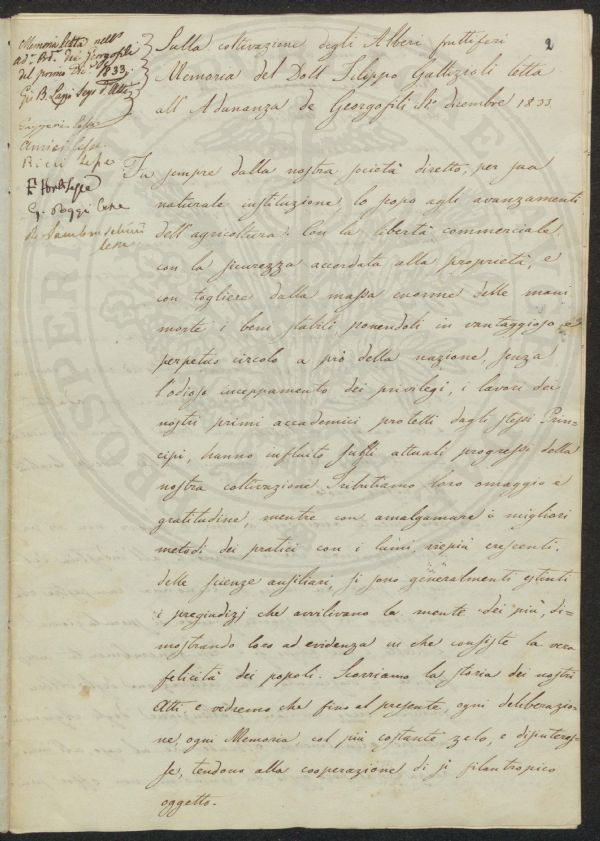 2
Memoria letta nell'
ad.ª Ord.ª dei Georgofili
del primo Dic. 1833.
Gio B. Lapi Seg.° d'Atti
Ruggeri lesse
Amici lesse
Ricci lesse
F Forti lesse
G. Poggi Lesse
lesse
Sulla coltivazione degli Alberi fruttiferi
Memoria del Dott. Filippo Gallizioli letta
all' Adunanza de Georgofili il 1° dicembre 1833
Fu sempre dalla nostra società diretto, per sua
naturale instituzione, lo scopo agli avanzamenti
dell'agricoltura. Con la libertà commerciale
con la sicurezza accordata alla proprietà, e
con togliere dalla massa enorme delle mani
morte i beni stabili ponendoli in vantaggioso e
perpetuo circolo a prò della nazione, senza
l'odioso inceppamento dei privilegi, i lavori dei
nostri primi accademici protetti dagli stessi Prin-
cipi, hanno influito sugli attuali progressi della
nostra coltivazione. Tributiamo loro omaggio e
gratitudine, mentre con amalgamare i migliori
metodi dei pratici con i lumi, viepiù crescenti,
delle scienze ausiliari, si sono generalmente estinti
i pregiudizj che avvilivano la mente dei più, di-
mostrando loro ad evidenza in che consiste la vera
felicità dei popoli. Scorriamo la storia dei nostri
Atti e vedremo che fino al presente, ogni deliberazio-
ne ogni Memoria col più costante zelo, e disinteres-
se, tendono alla cooperazione di sì filantropico
oggetto.